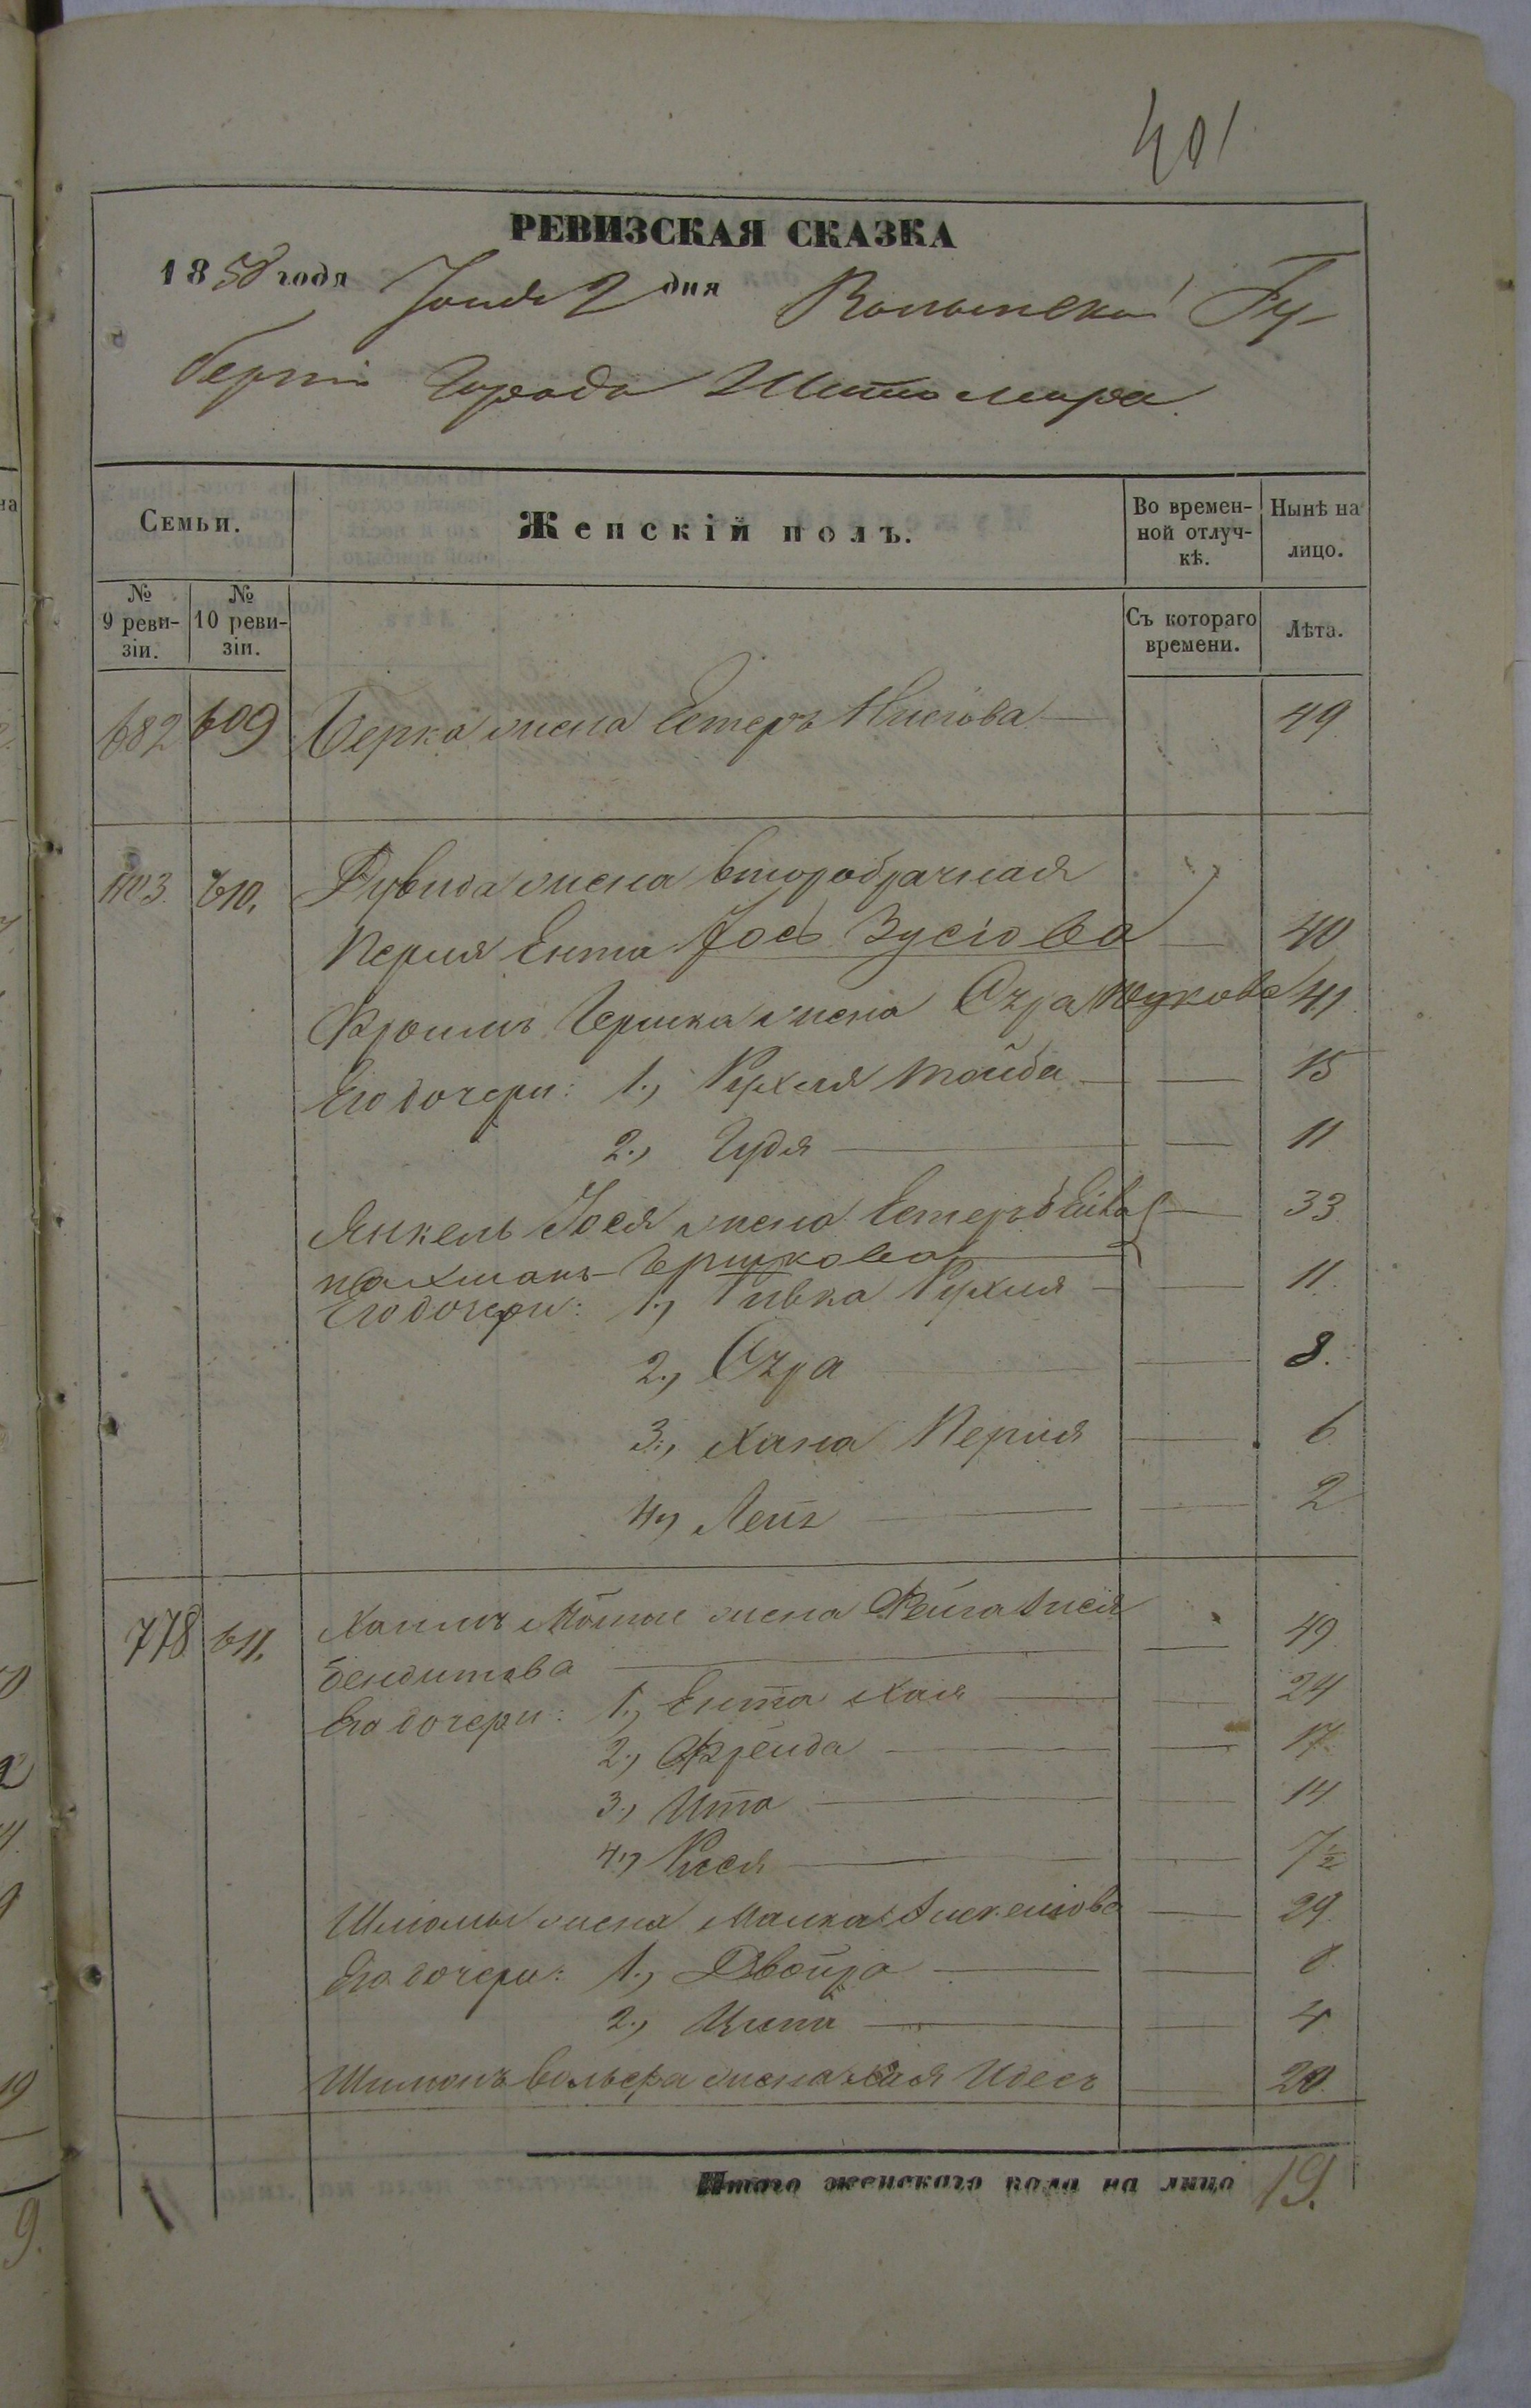 401
РЕВИЗСКАЯ СКАЗКА
1858 года Іюня 2 дня Волынской Гу-
берніи Города Житомира
Семьи.
Женскій полъ.
Во времен-
ной отлуч-
кѣ.
Нынѣ на
лицо.
№
9 реви-
зіи.
№
10 реви-
зіи.
Съ котораго
времени.
Лѣта.
682 609 Берка жена Естеръ Нисіова 49
1103. 610. Дувида жена второбрачная
Перля Ента Іось Зусіова 40
Фроимъ Гершка жена Сура 41
Его дочери: 1., Рухля Тойба 15
2., Гудя 11
Янкель Іося жена Естеръ 33
Нахманъ Гершкова
Его дочери: 1., Ривка Рухля 11.
2., Сура 8.
3., Хана Перля 6
4., Лея 2
778 611. Хаимъ жена Фейга
Бендитова 49
Его дочери: 1., Ента Хая 24
2., Фрейда 17
3., Ита 14
4., Рися 7½
Шліомы жена Малка 29
Его дочери: 1., Двойра 8.
2., Ципа 4
Шимонъ Вольфа жена Хая Идесъ 20.
Итого женскаго пола на лицо 19.